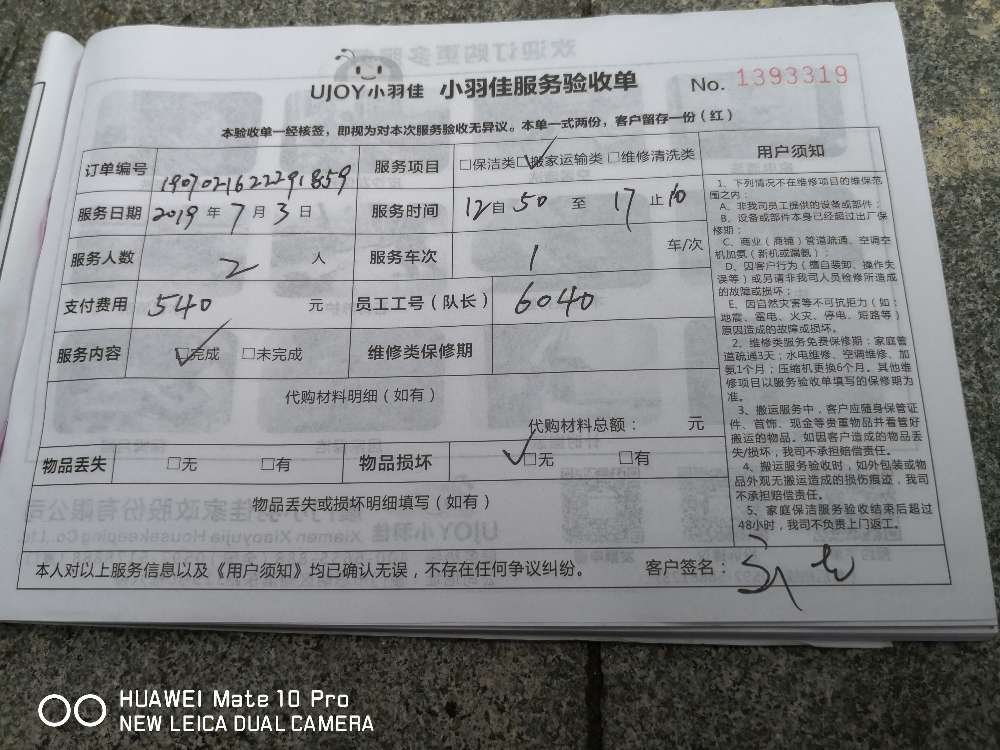 UJOY小羽佳 小羽佳服务验收单 No. 1393319
本验收单一经核签，即视为对本次服务验收无异议。本单一式两份，客户留存一份（红）
订单编号 190702162229​1859 服务项目 □保洁类 □搬家运输类 □维修清洗类
服务日期 2019 年 7 月 3 日 服务时间 12 自 50 至 17 止 10
服务人数 2 人 服务车次 1 车/次
支付费用 540 元 员工工号（队长） 6040
服务内容 □完成 □未完成 维修类保修期
代购材料明细（如有）
代购材料总额： 元
物品丢失 □无 □有 物品损坏 □无 □有
物品丢失或损坏明细填写（如有）
本人对以上服务信息以及《用户须知》均已确认无误，不存在任何争议纠纷。 客户签名：
用户须知
1、下列情况不在维修项目的维保范
围之内：
A、非我司员工提供的设备或部件；
B、设备或部件本身已经超过出厂保
修期；
C、商业（商铺）管道疏通、空调空
机加氨（新机或漏氨）；
D、因客户行为（擅自装卸、操作失
误等）或另请非我司人员检修所造成
的故障或损坏；
E、因自然灾害等不可抗拒力（如：
地震、雷电、火灾、停电、短路等）
原因造成的故障或损坏。
2、维修类服务免费保修期：家庭管
道疏通3天；水电维修、空调维修、加
氨1个月；压缩机更换6个月。其他维
修项目以服务验收单填写的保修期为
准。
3、搬运服务中，客户应随身保管证
件、首饰、现金等贵重物品并看管好
搬运的物品。如因客户造成的物品丢
失/损坏，我司不承担赔偿责任。
4、搬运服务验收时，如外包装或物
品外观无搬运造成的损伤痕迹，我司
不承担赔偿责任。
5、家庭保洁服务验收结束后超过
48小时，我司不负责上门返工。
HUAWEI Mate 10 Pro
NEW LEICA DUAL CAMERA